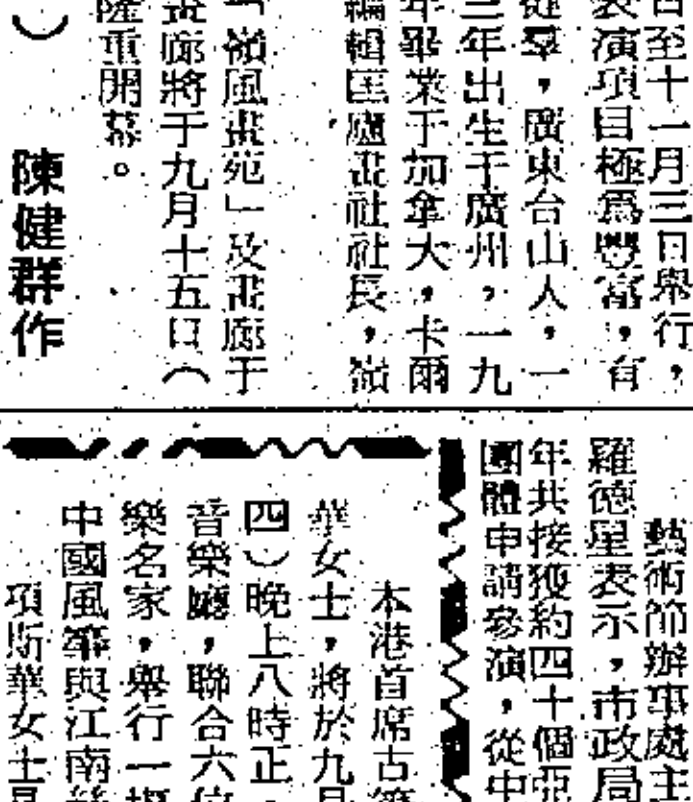 日至十一月三日舉行，
表演項目極爲豐富，有
從羣，廣東台山人，一
三年出生于廣州，一九
年畢業于加拿大，卡爾
編輯匡廬畫社社長，嶺
「嶺風畫苑」及畫廊于
畫廊將于九月十五日（
隆重開幕。
）　陳健群作
藝術節辦事處主
羅德星表示，市政局
年共接獲約四十個亞
團體申請參演，從中
本港首席古箏
華女士，將於九月
四）晚上八時正，
音樂廳，聯合六位
樂名家，舉行一場
中國風箏與江南絲
項斯華女士是